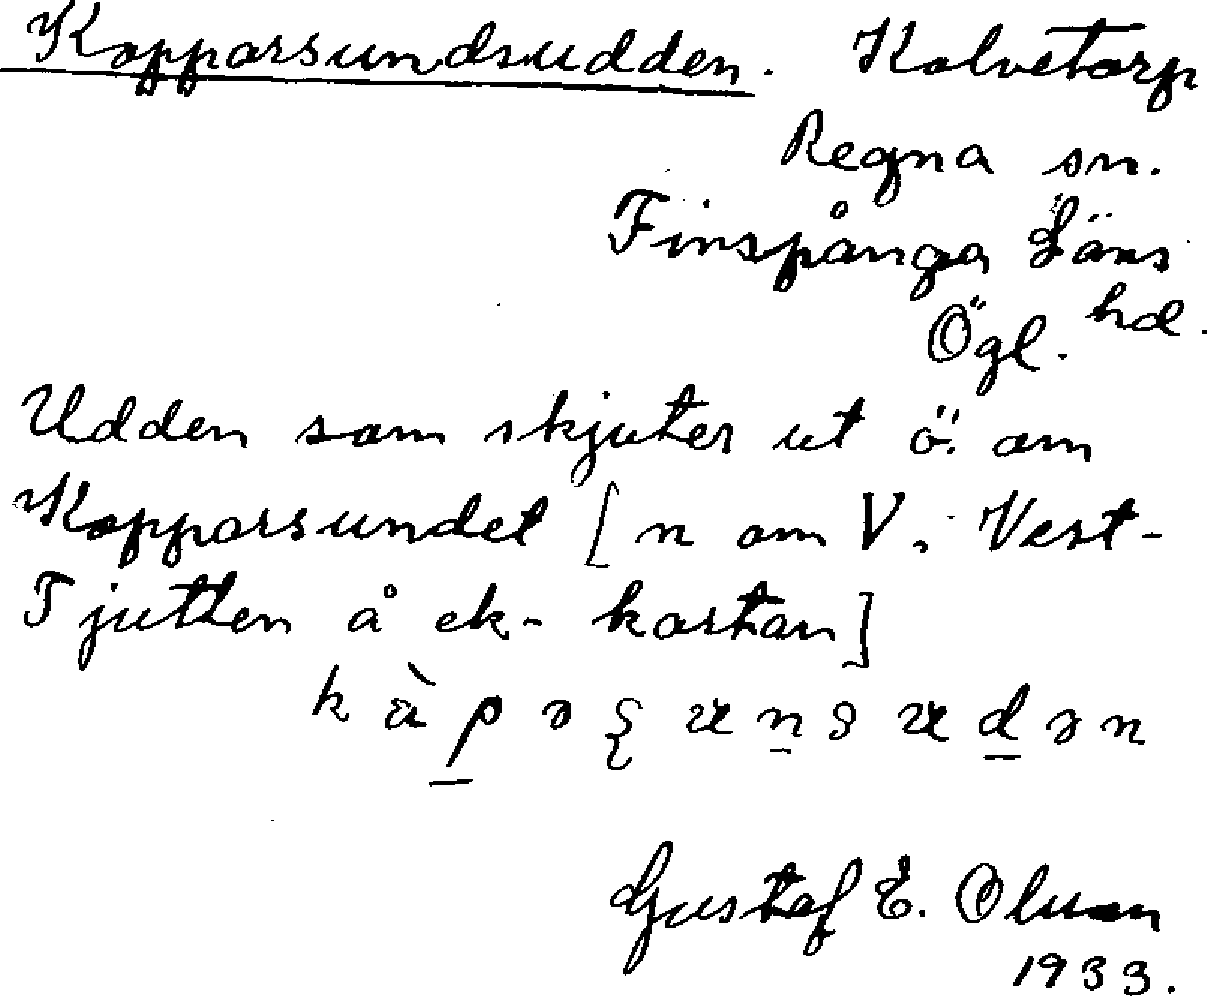 Kopparsundsudden. Kalvetorp
Regna sn.
Finspånga Läns
hd.
Ögl.
Udden som skjuter ut ö. om
Kopparsundet [n om V. Vest-
Tjutten å ek- kartan]
Gustaf E.
1933.